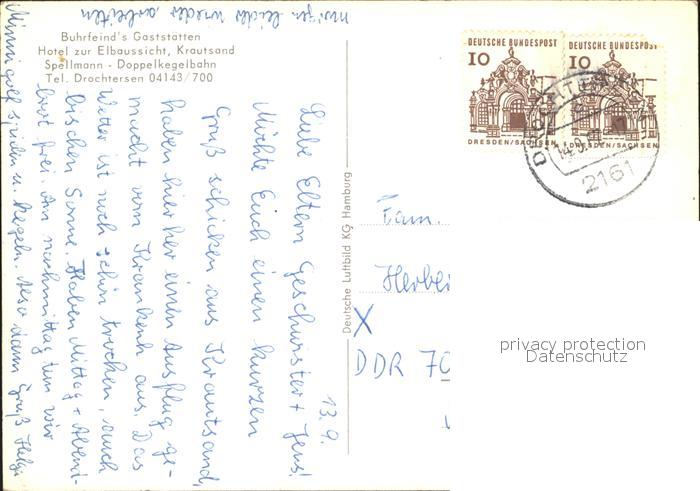 Buhrfeind's Gaststätten
Hotel zur Elbaussicht, Krautsand
Spellmann - Doppelkegelbahn
Tel. Drochtersen 04143/700
13.9.
Liebe Eltern Geschwister + Jens!
Möchte Euch einen kurzen
Gruß schicken aus Krautsand,
haben hierher einen Ausflug ge-
macht vom Krankenh. aus. Das
Wetter ist noch schön trocken, auch
bischen Sonne. Haben Mittag + Abend-
brot frei. Am nachmittag tun wir
Minni golf spielen u. Kegeln. Also dann Gruß Helga
morgen leider wieder arbeiten
Deutsche Luftbild KG Hamburg
DEUTSCHE BUNDESPOST
10
DRESDEN/SACHSEN
DEUTSCHE BUNDESPOST
10
DRESDEN/SACHSEN
2161
Fam.
X
DDR 70
privacy protection
Datenschutz